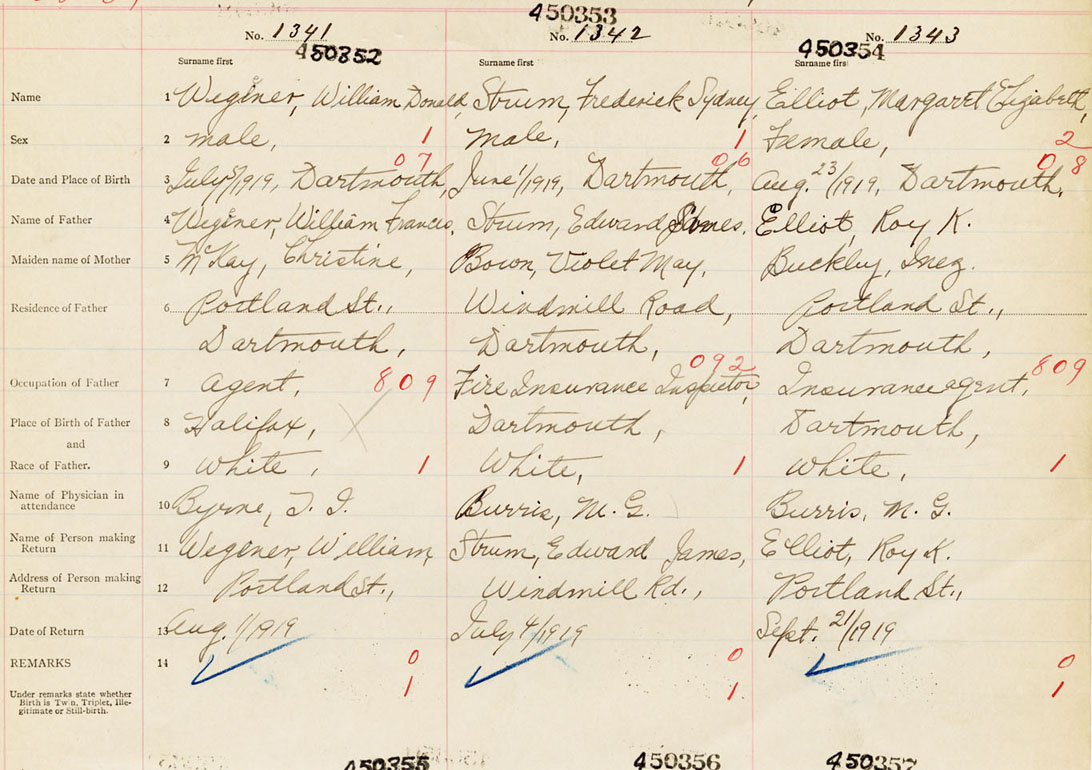 450353
No. 1341 No. 1342 No. 1343
450352 450354
Surname first Surname first Surname first
Name 1 Wegener, William Donald, Strum, Frederick Sydney, Elliot, Margaret Elizabeth,
Sex 2 male, 1 Male, 1 Female, 2
07 06 08
Date and Place of Birth 3 July 5/1919, Dartmouth, June 1/1919, Dartmouth, Aug. 23/1919, Dartmouth,
Name of Father 4 Wegener, William Francis, Strum, Edward James, Elliot, Roy K.
Maiden name of Mother 5 McKay, Christine, Bown, Violet May, Buckley, Inez.
Residence of Father 6 Portland St., Windmill Road, Portland St.,
Dartmouth, Dartmouth, Dartmouth,
Occupation of Father 7 Agent, 809 Fire Insurance Inspector, 092 Insurance agent, 809
Place of Birth of Father 8 Halifax, Dartmouth, Dartmouth,
and
Race of Father. 9 White, 1 White, 1 White, 1
Name of Physician in
attendance 10 Byrne, T. I. Burris, M. G. Burris, M. G.
Name of Person making
Return 11 Wegener, William, Strum, Edward James, Elliot, Roy K.
Address of Person making
Return 12 Portland St., Windmill Rd., Portland St.,
Date of Return 13 Aug. 1/1919 July 4/1919 Sept. 21/1919
REMARKS 14 0 0 0
Under remarks state whether 1 1 1
Birth is Twin, Triplet, Ille-
gitimate or Still-birth.
450355 450356 450357